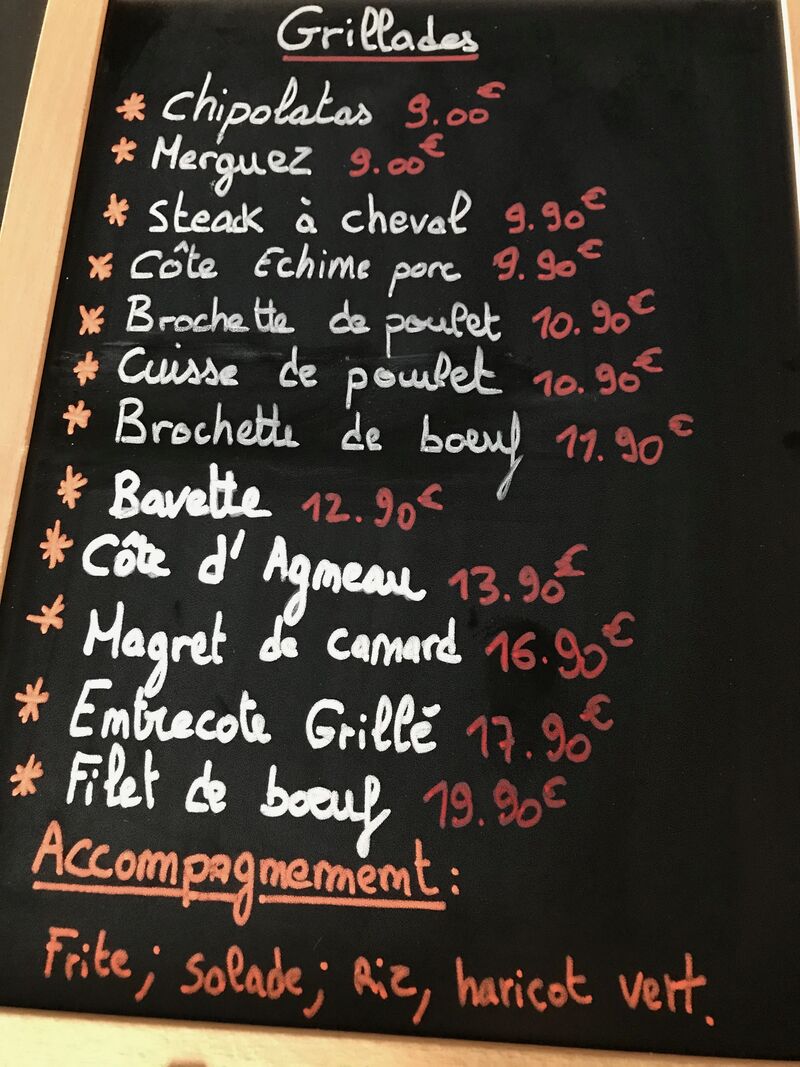 Grillades
* Chipolatas 9.00€
* Merguez 9.00€
* Steak à cheval 9.90€
* Côte Echime porc 9.90€
* Brochette de poulet 10.90€
* Cuisse de poulet 10.90€
* Brochette de boeuf 11.90€
* Bavette 12.90€
* Côte d'Agneau 13.90€
* Magret de canard 16.90€
* Entrecote Grillé 17.90€
* Filet de boeuf 19.90€
Accompagnement :
Frite; Solade; Riz, haricot vert.